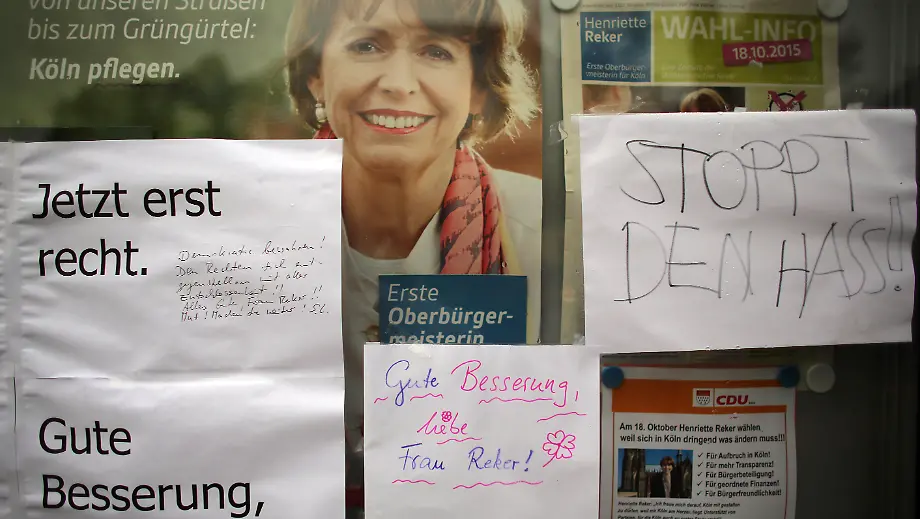 von unseren Straßen
bis zum Grüngürtel:
Köln pflegen.
Henriette
Reker
Erste Oberbürger-
meisterin für Köln
WAHL-INFO
18.10.2015
Jetzt erst
recht.
Demokratie bewahren!
Den Rechten sich ent-
gegenstellen mit aller
Entschlossenheit!!
Alles Gute, Frau Reker!!
Mut! Machen Sie weiter!
STOPPT
DEN HASS!
Erste
Oberbürger-
meisterin
Gute
Besserung,
Gute Besserung,
liebe
Frau Reker!
CDU
Am 18. Oktober Henriette Reker wählen,
weil sich in Köln dringend was ändern muss!!!
✓ Für Aufbruch in Köln!
✓ Für mehr Transparenz!
✓ Für Bürgerbeteiligung!
✓ Für geordnete Finanzen!
✓ Für Bürgerfreundlichkeit!